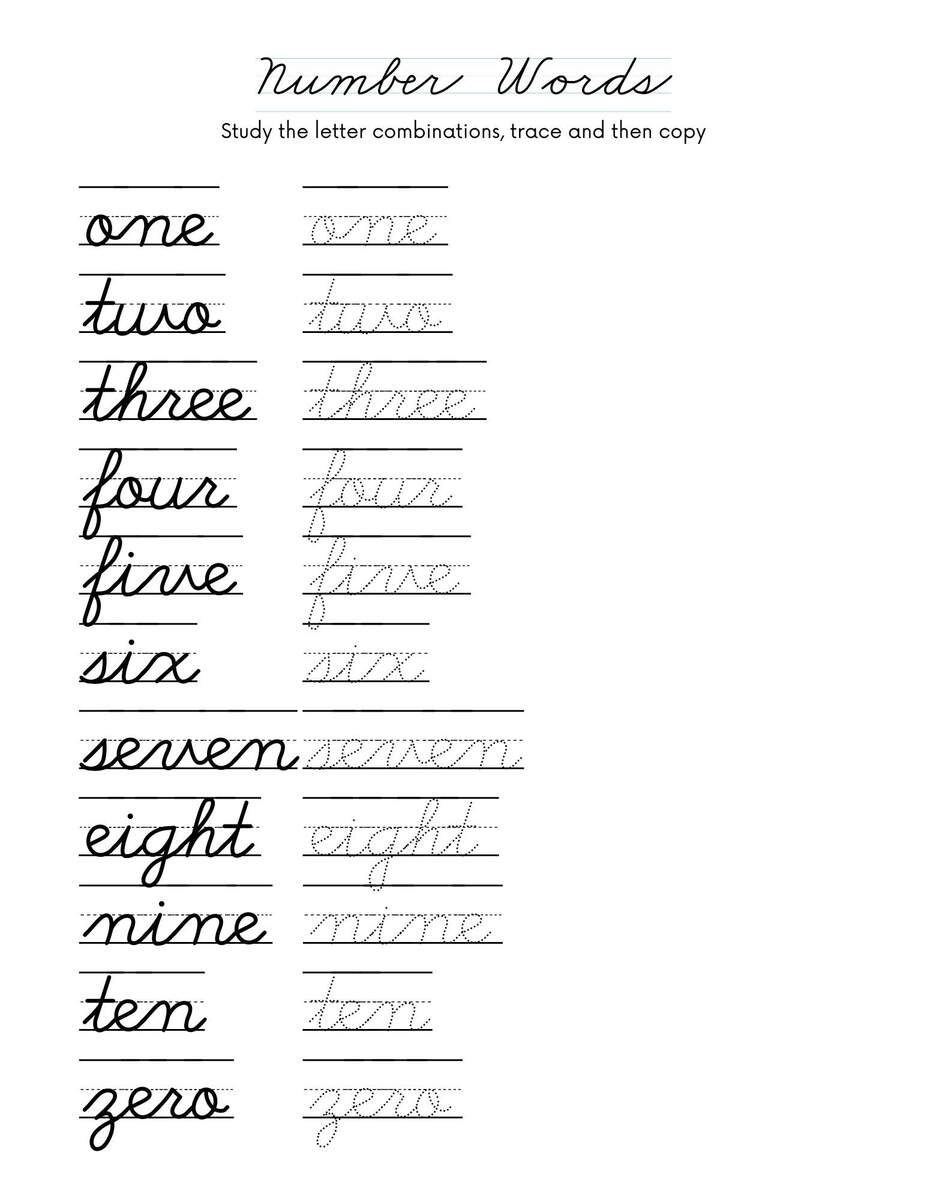 Number Words
Study the letter combinations, trace and then copy
one one
two two
three three
four four
five five
six six
seven seven
eight eight
nine nine
ten ten
zero zero